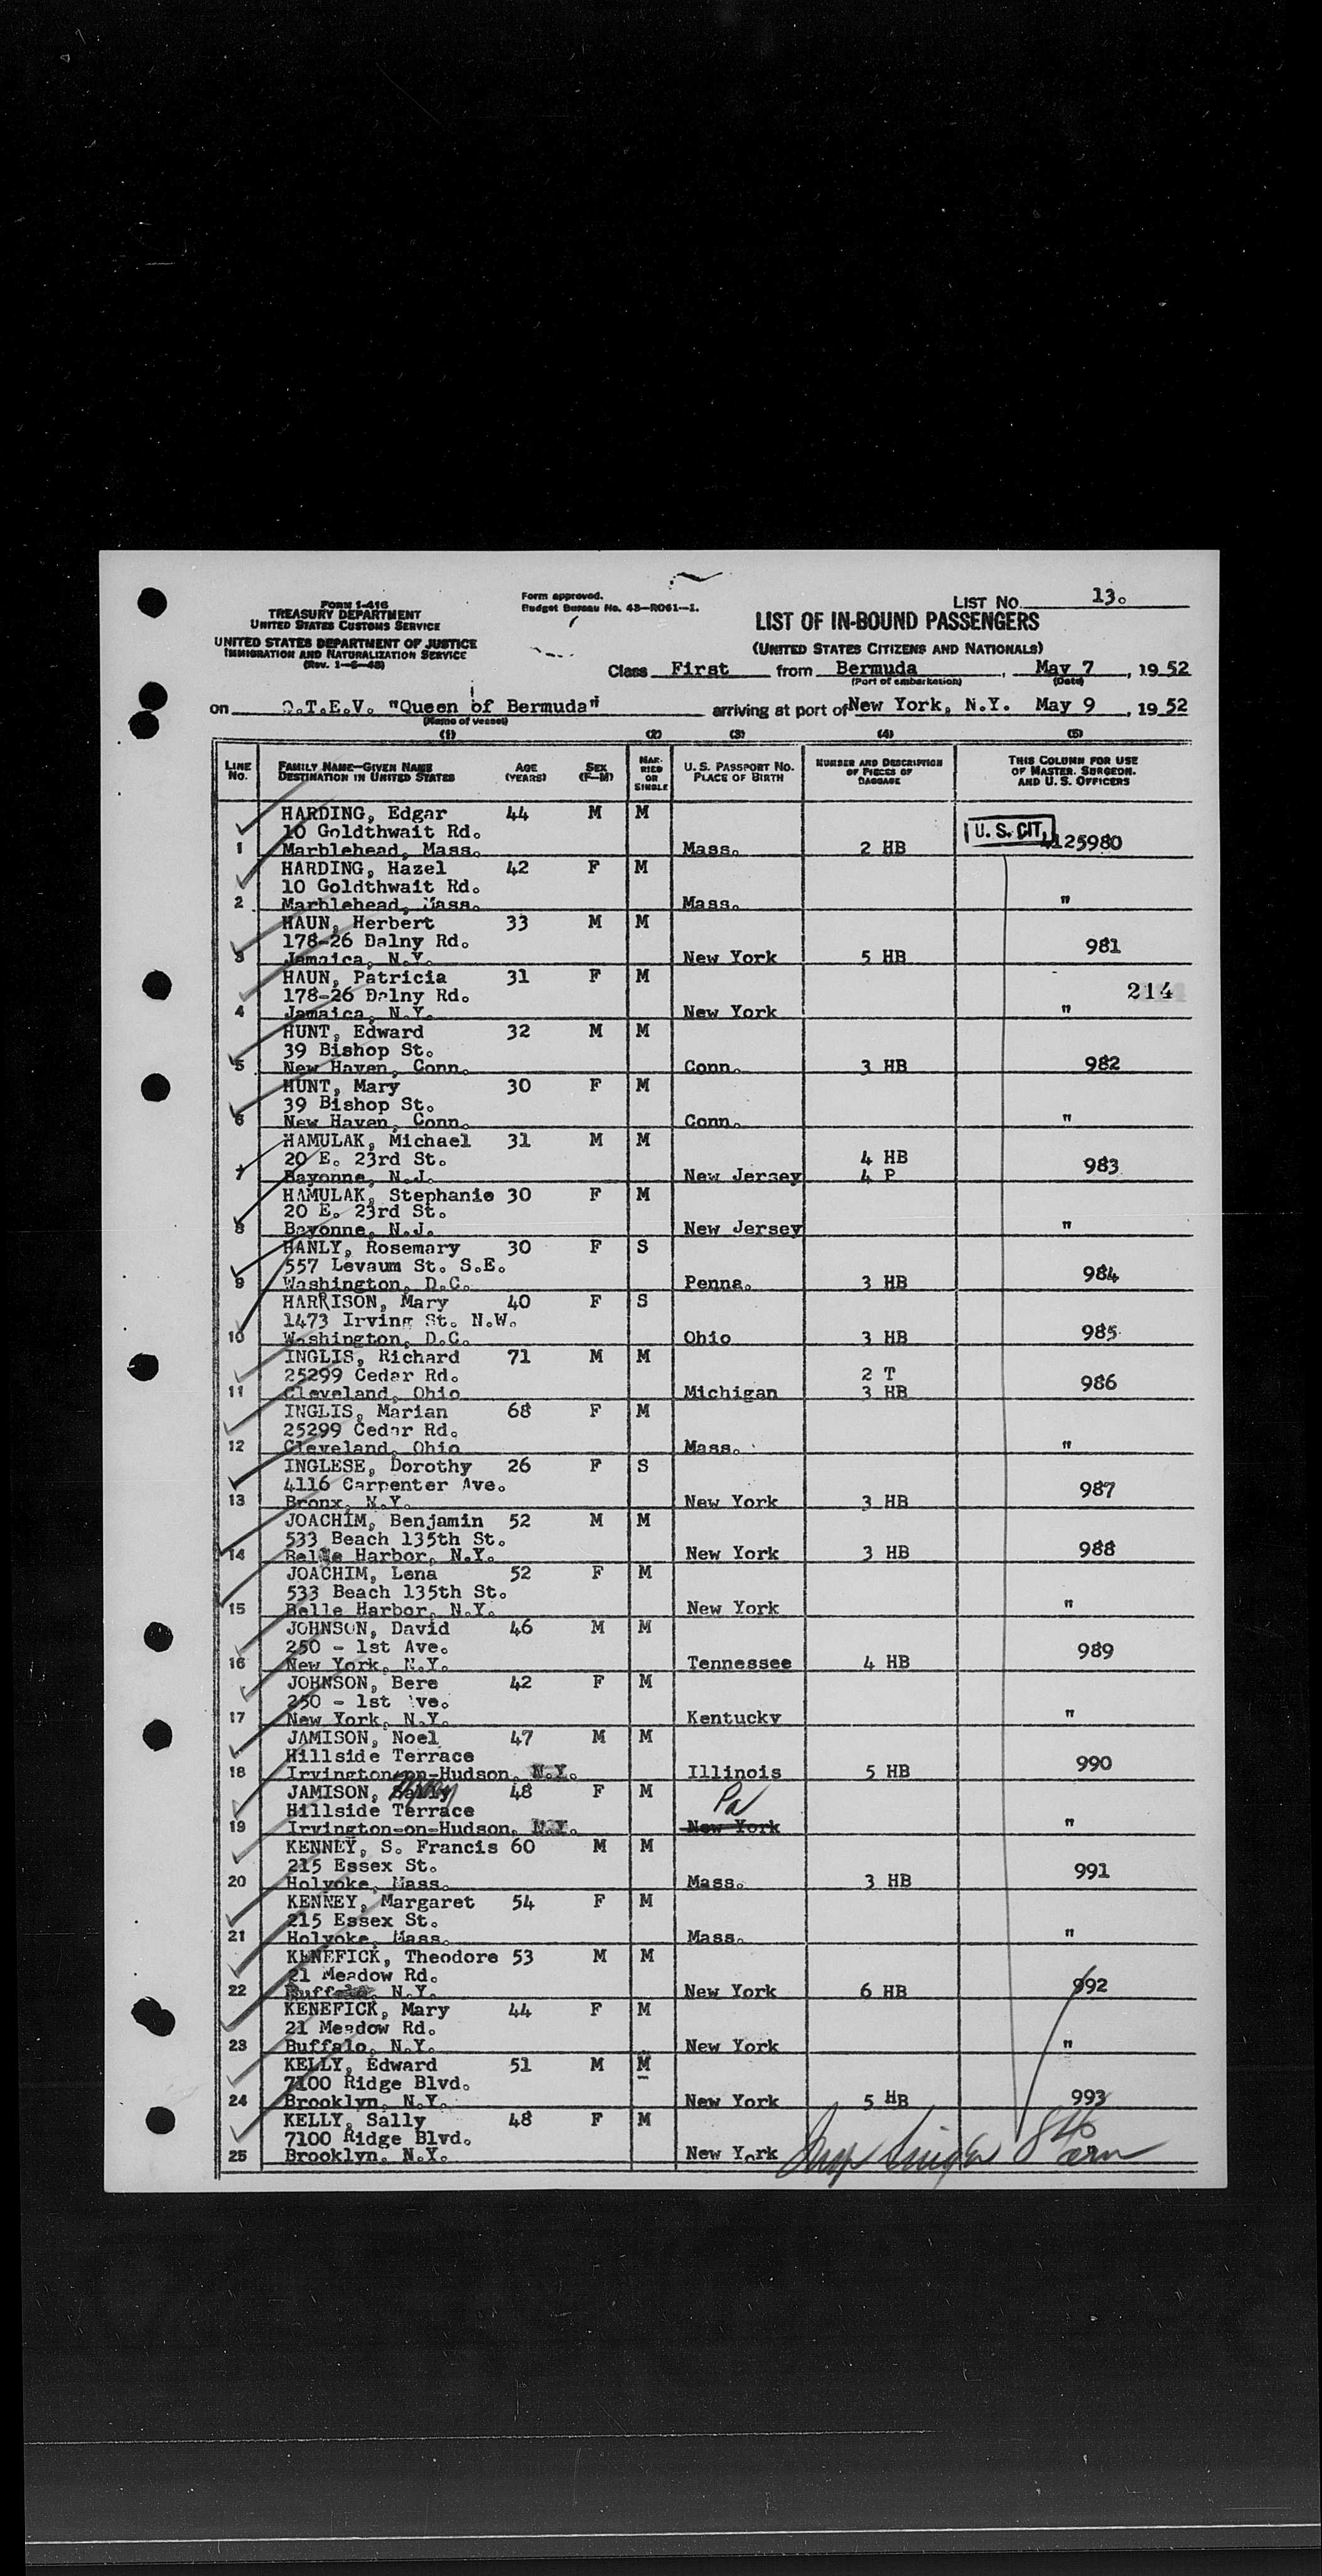 Form I-416
TREASURY DEPARTMENT
UNITED STATES CUSTOMS SERVICE
UNITED STATES DEPARTMENT OF JUSTICE
IMMIGRATION AND NATURALIZATION SERVICE
(Rev. 1-6-48)
Form approved.
Budget Bureau No. 43-R061-1.
LIST NO. 13.
LIST OF IN-BOUND PASSENGERS
(UNITED STATES CITIZENS AND NATIONALS)
Class First from Bermuda, May 7, 1952
(Port of embarkation) (Date)
on Q.T.E.V. "Queen of Bermuda" arriving at port of New York, N.Y. May 9, 1952
(Name of vessel)
(1) (2) (3) (4) (5)
LINE NO. FAMILY NAME—GIVEN NAME DESTINATION IN UNITED STATES AGE (YEARS) SEX (F—M) MARRIED OR SINGLE U. S. PASSPORT NO. PLACE OF BIRTH NUMBER AND DESCRIPTION OF PIECES OF BAGGAGE THIS COLUMN FOR USE OF MASTER, SURGEON, AND U. S. OFFICERS
HARDING, Edgar 44 M M
10 Goldthwait Rd. U. S. CIT.
1 Marblehead, Mass. Mass. 2 HB 4125980
HARDING, Hazel 42 F M
10 Goldthwait Rd.
2 Marblehead, Mass. Mass. "
HAUN, Herbert 33 M M
178-26 Dalny Rd. 981
3 Jamaica, N.Y. New York 5 HB
HAUN, Patricia 31 F M
178-26 Dalny Rd. 214
4 Jamaica, N.Y. New York "
HUNT, Edward 32 M M
39 Bishop St.
5 New Haven, Conn. Conn. 3 HB 982
HUNT, Mary 30 F M
39 Bishop St.
6 New Haven, Conn. Conn. "
HAMULAK, Michael 31 M M
20 E. 23rd St. 4 HB 983
7 Bayonne, N.J. New Jersey 4 P
HAMULAK, Stephanie 30 F M
20 E. 23rd St.
8 Bayonne, N.J. New Jersey "
HANLY, Rosemary 30 F S
557 Levaum St. S.E. 984
9 Washington, D.C. Penna. 3 HB
HARRISON, Mary 40 F S
1473 Irving St. N.W.
10 Washington, D.C. Ohio 3 HB 985
INGLIS, Richard 71 M M
25299 Cedar Rd. 2 T 986
11 Cleveland, Ohio Michigan 3 HB
INGLIS, Marian 68 F M
25299 Cedar Rd.
12 Cleveland, Ohio Mass. "
INGLESE, Dorothy 26 F S
4116 Carpenter Ave. 987
13 Bronx, N.Y. New York 3 HB
JOACHIM, Benjamin 52 M M
533 Beach 135th St.
14 Belle Harbor, N.Y. New York 3 HB 988
JOACHIM, Lena 52 F M
533 Beach 135th St.
15 Belle Harbor, N.Y. New York "
JOHNSON, David 46 M M
250 - 1st Ave. 989
16 New York, N.Y. Tennessee 4 HB
JOHNSON, Bere 42 F M
250 - 1st Ave.
17 New York, N.Y. Kentucky "
JAMISON, Noel 47 M M
Hillside Terrace
18 Irvington-on-Hudson, N.Y. Illinois 5 HB 990
JAMISON, 48 F M Pa
Hillside Terrace
19 Irvington-on-Hudson, N.Y. New York "
KENNEY, S. Francis 60 M M
215 Essex St.
20 Holyoke, Mass. Mass. 3 HB 991
KENNEY, Margaret 54 F M
215 Essex St.
21 Holyoke, Mass. Mass. "
KENEFICK, Theodore 53 M M
21 Meadow Rd.
22 Buffalo, N.Y. New York 6 HB 992
KENEFICK, Mary 44 F M
21 Meadow Rd.
23 Buffalo, N.Y. New York "
KELLY, Edward 51 M M
7100 Ridge Blvd.
24 Brooklyn, N.Y. New York 5 HB 993
KELLY, Sally 48 F M
7100 Ridge Blvd.
25 Brooklyn, N.Y. New York